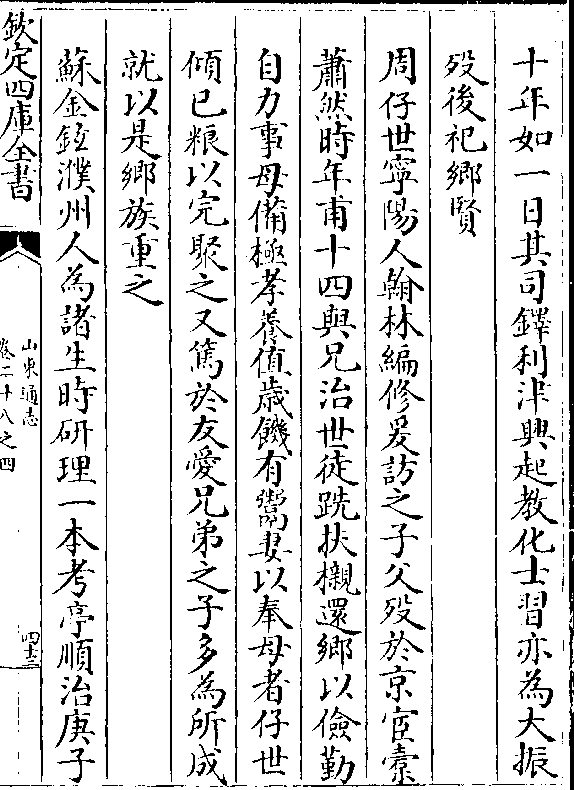 十年如一日其司鐸利津興起教化士習亦為大振
歿後祀鄉賢
周仔世寧陽人翰林編修爰訪之子父歿於京宦橐
蕭然時年甫十四與兄治世徒跣扶櫬還鄉以儉勤
自力事母備極孝養值歲饑有鬻妻以奉母者仔世
傾已粮以完聚之又篤於友愛兄弟之子多為所成
就以是鄉族重之
蘇金鉉濮州人為諸生時研理一本考亭順治庚子
欽定四庫全書
山東通志
卷二十八之四
四十三